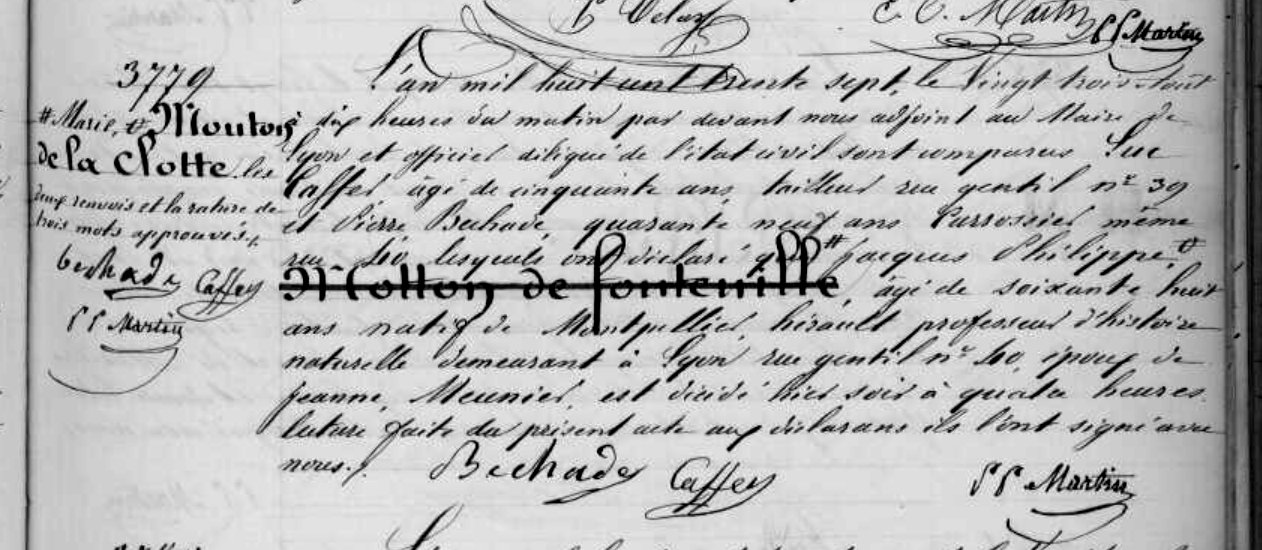 P Delaz
E. C. Martin
P P Martin
3779
# Marie, ₶ Mouton
de la Clotte. les
deux renvois et la rature de
trois mots approuvés./.
bechade Caffey
P P Martin
L'an mil huit cent trente sept, le vingt trois août
à dix heures du matin par devant nous adjoint au Maire de
Lyon et officier délégué de l'état civil sont comparus Luc
Caffey âgé de cinquante ans, tailleur rue gentil n° 39
et Pierre Bechade, quarante neuf ans Carrossier même
rue, 40, lesquels ont déclaré que # jacques Philippe, ₶
Motton de fontenille, âgé de soixante huit
ans natif de Montpellier, hérault professeur d'histoire
naturelle demeurant à Lyon rue gentil n° 40, époux de
jeanne, Meunier, est décédé hier soir à quatre heures.
lecture faite du présent acte aux déclarans ils l'ont signé avec
nous./.
Bechade Caffey P P Martin